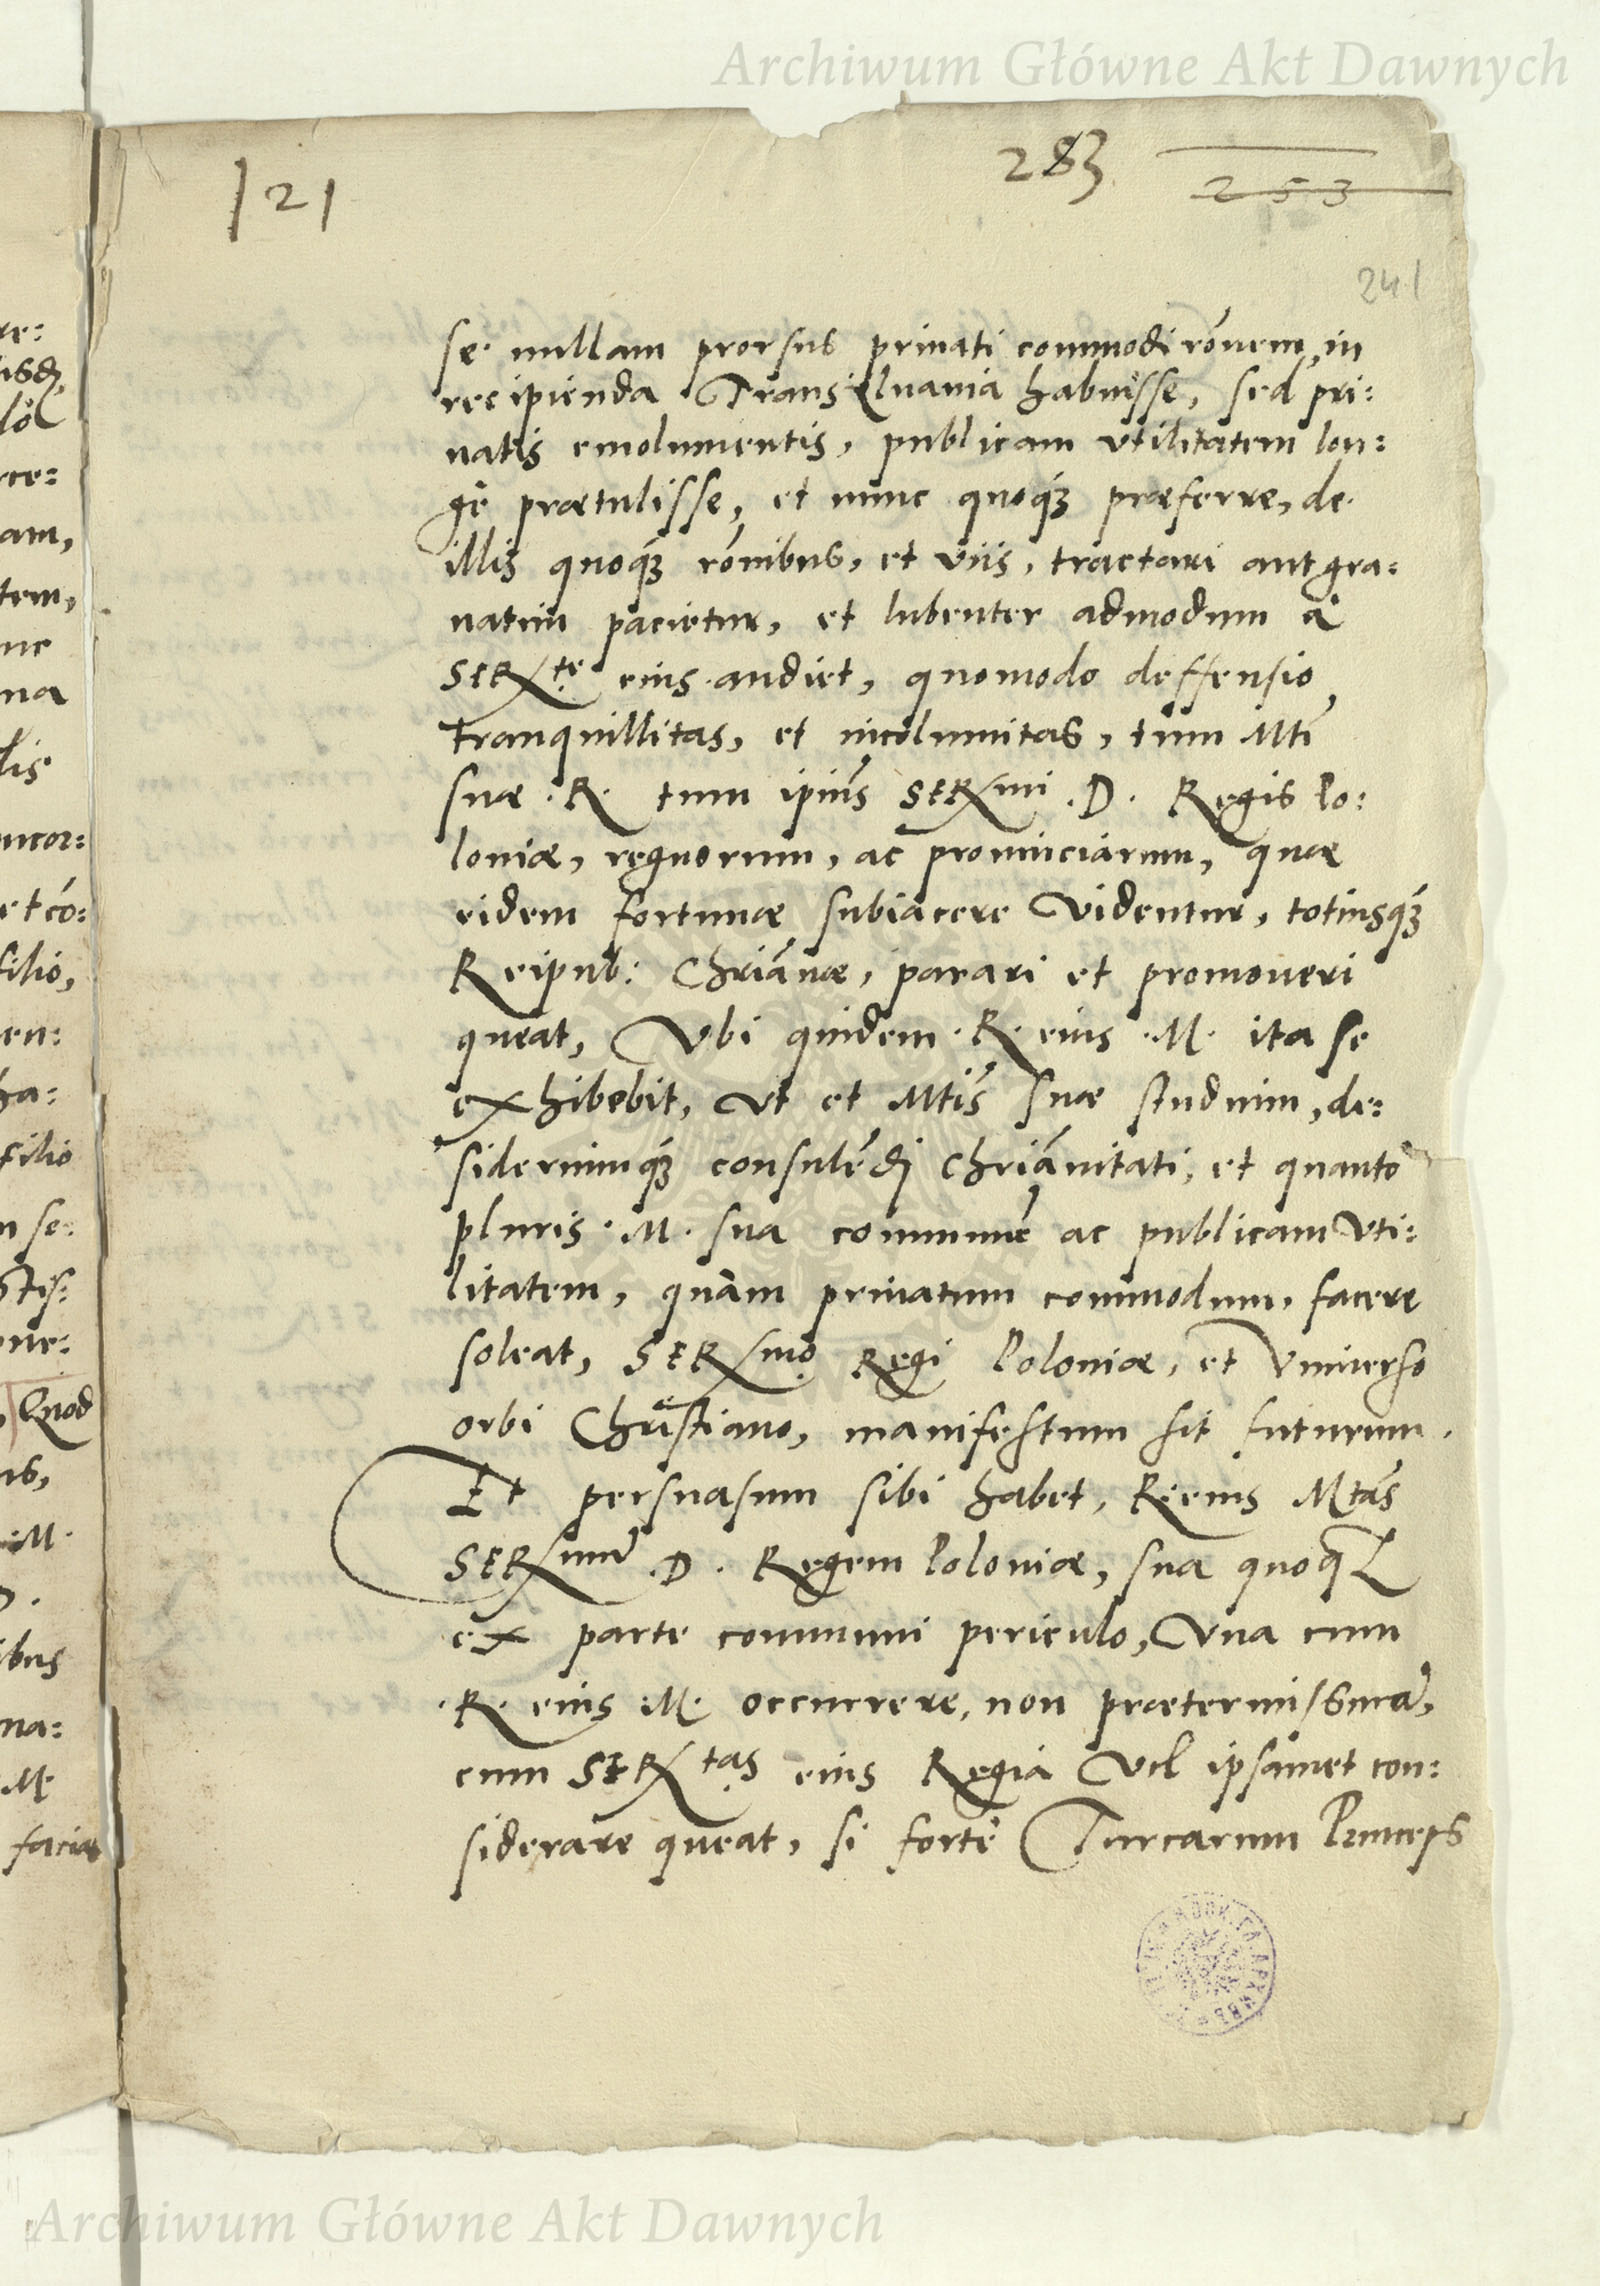 Archiwum Główne Akt Dawnych
121
283
253
241
se nullam prorsus priuati commodi rõnem, in
recipienda Transÿluania habuisse, sed pri:
uatis emolumentis, publicam vtilitatem lon:
gè prætulisse, et nunc quoq́ʒ præferre, de
illis quoq́ʒ rõnibus, et viis, tractari aut gra:
uatim pacietur, et lubenter admodum à
SERᵗᵉ eius audiet, quomodo deffensio
tranquillitas, et incolumitas, tum Mti
suæ .R. tum ipius SERmi .D. Regis Po:
loniæ, regnorum, ac prouinciarum, quæ
eidem fortunæ subiacere videntur, totiusq́ʒ
Reipub: Chriãnæ, parari et promoueri
queat, Vbi quidem .R. eius .M. ita se
exhibebit, vt et Mtis suæ studuim, de:
sideriumq́ʒ consulẽdi chriãnitati, et quanto
pluris .M. sua communẽ ac publicam vti:
litatem, quàm priuatum commodum, facere
soleat, SERmo Regi Poloniæ, et Vniuerso
orbi Christiano, manifestum sit futurum.
Et persuasum sibi habet, R. eius Mtas
SERmũ .D. Regem Poloniæ, sua quoqʒ
ex parte communi periculo, Vna cum
.R. eius .M. occurrere, non prætermissurũ,
cum SERᵗᵃˢ eius Regia Vel ipsamet con:
siderare queat, si fortè Turcarum Princeps
Archiwum Główne Akt Dawnych